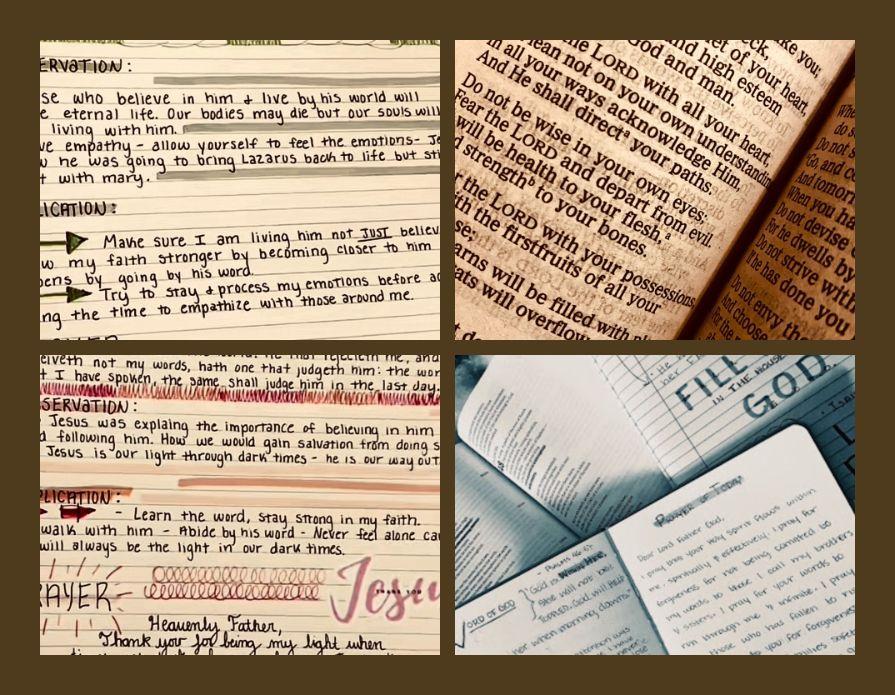 ERVATION:
se who believe in him + live by his world will
e eternal life. Our bodies may die but our souls will
living with him.
ve empathy - allow yourself to feel the emotions- Je
w he was going to bring Lazarus back to life but sti
t with mary.
LICATION:
Make sure I am living him not JUST believ
ow my faith stronger by becoming closer to him
pens by going by his word.
Try to stay + process my emotions before ac
ng the time to empathize with those around me.
ke you;
et of your heart,
and high esteem
God and man.
the LORD with all your heart,
lean not on your own understanding
in all your ways acknowledge Him,
And He shall direct your paths.
Do not be wise in your own eyes:
Fear the LORD and depart from evil.
will be health to your flesh,
d strength to your bones.
the LORD with your possessions,
th the firstfruits of all your
se;
arns will be filled with
ats will overflow
Whe
do s
Do not s
"Go, and co
And tomorr
When you ha
Do not devise
For he dwells by
Do not strive with
If he has done you
Do not envy the
And choose
eiveth not my words, hath one that judgeth him: the wor
t I have spoken, the same shall judge him in the last day.
SERVATION:
Jesus was explaing the importance of believing in him
d following him. How we would gain salvation from doing s
Jesus is our light through dark times - he is our way out
PLICATION:
- Learn the word, stay strong in my faith.
walk with him - Abide by his word - Never feel alone ca
will always be the light in our dark times.
RAYER
Jesu
Heavenly Father,
Thank you for being my light when
FILL
IN THE HOUSE
GOD.
PRAYER OF TODAY
Dear Lord Father God,
I pray that your holy spirit flows within
me spiritually & effectively. I pray for
forgiveness for not being comitted to
my words to those I call my brothers
& sisters. I pray for your words to
run through me & infinite. I pray
those who had fallen to
to you for forgiveness
WORD OF GOD
- Psalms 46:5
"God is within her,
She will not fall
her when morning dawns"